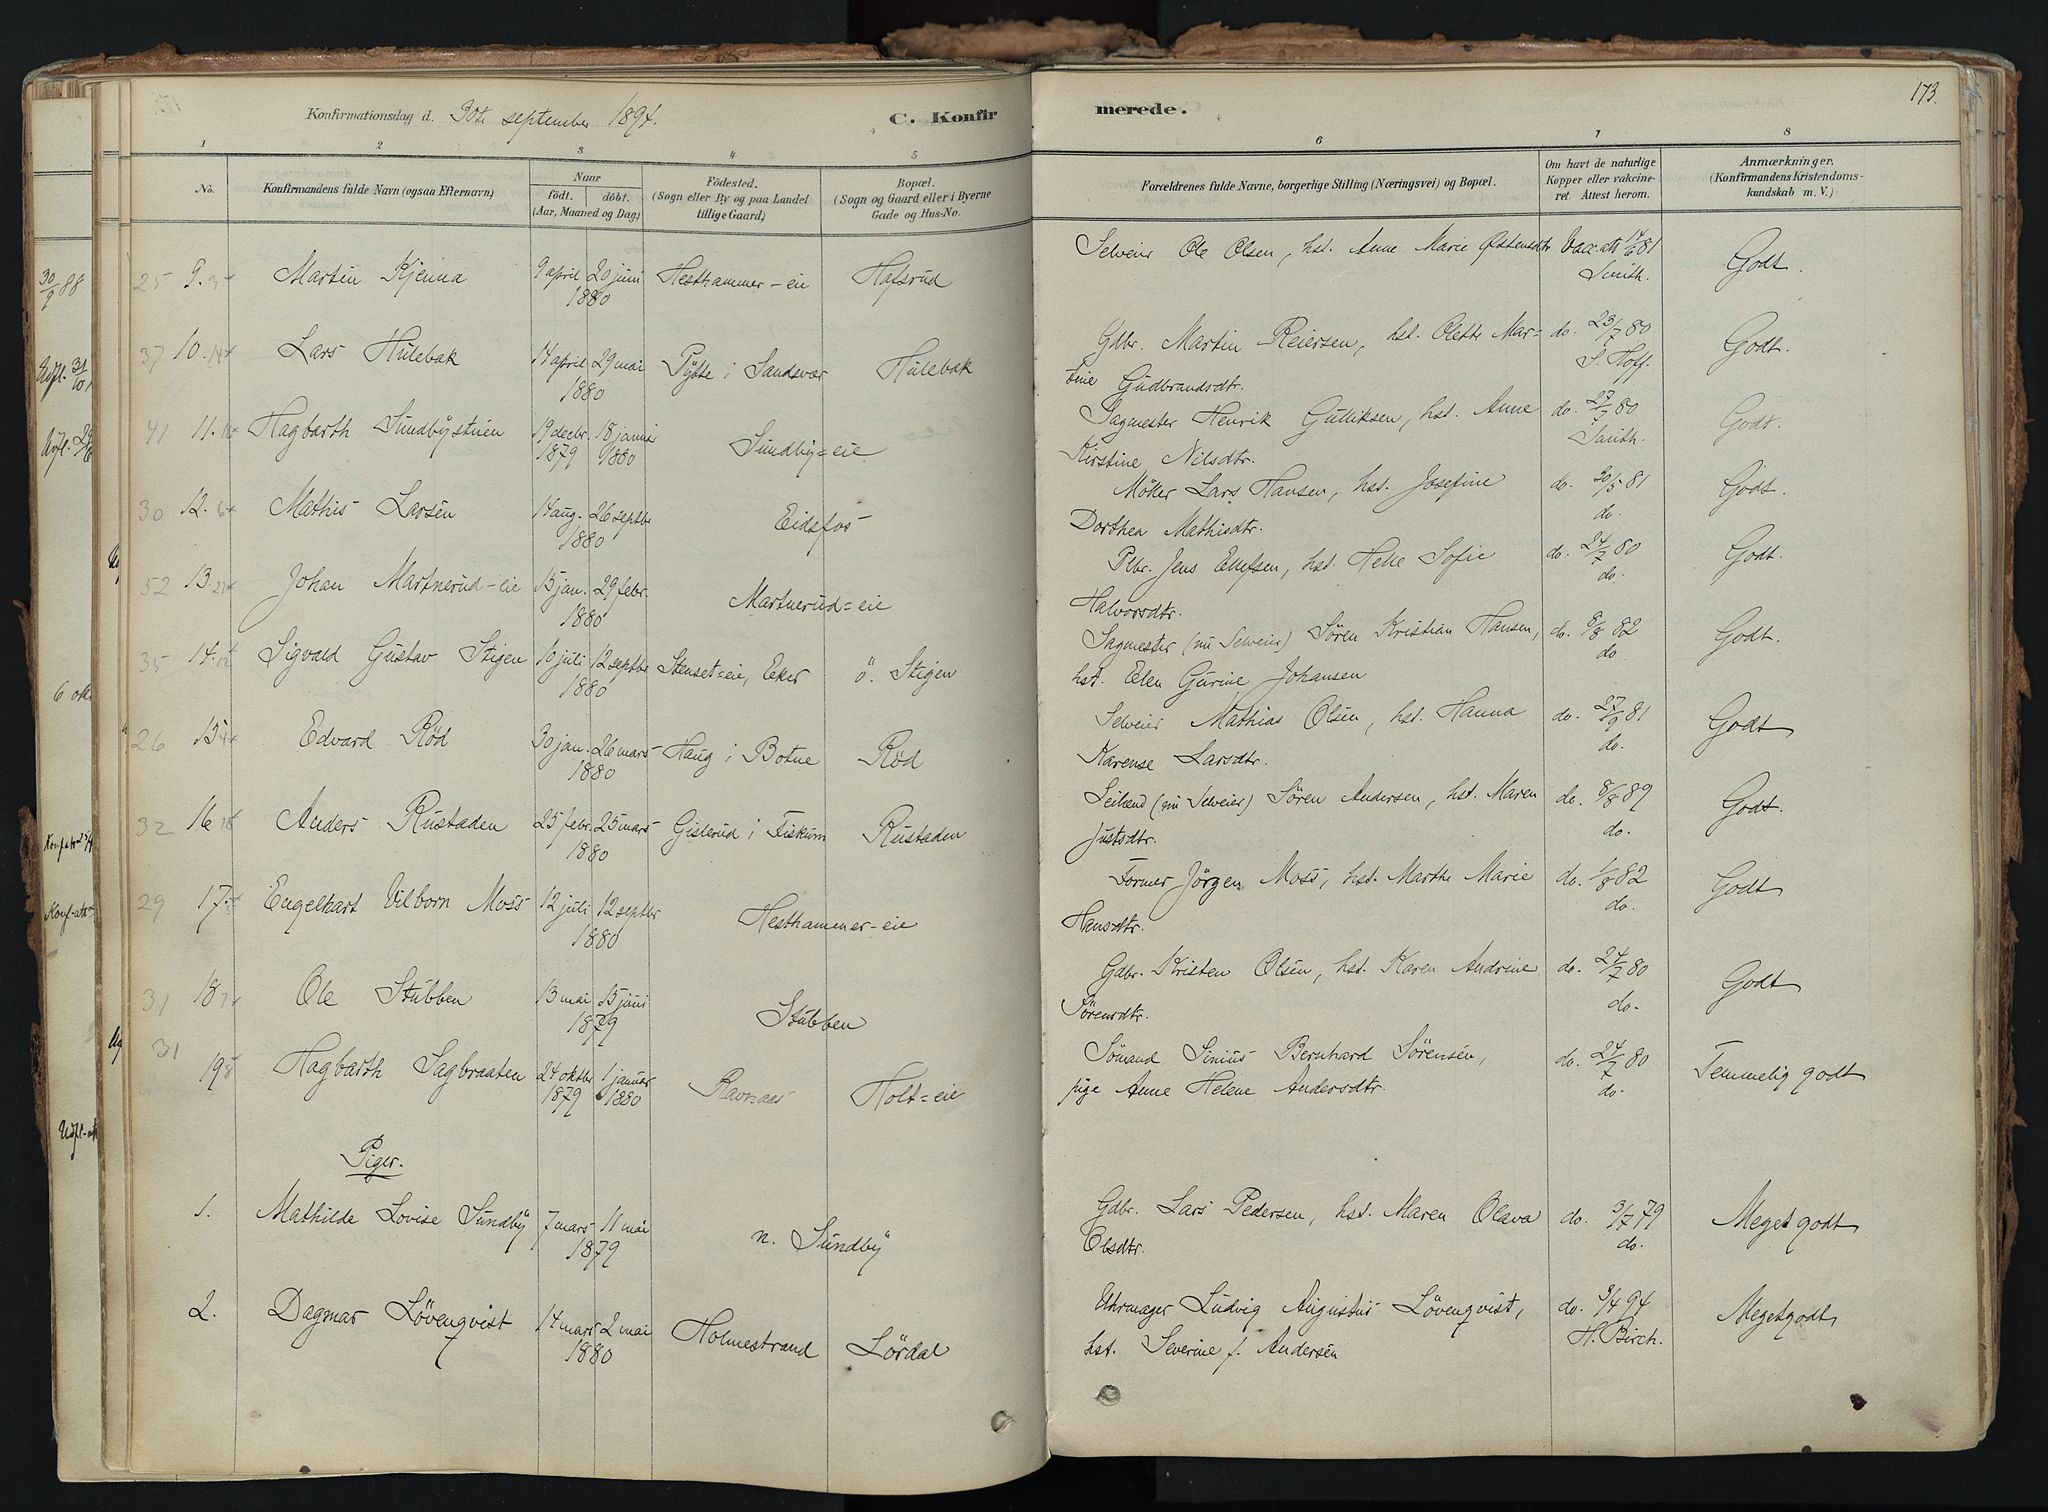 Konfirmationsdag d. 30te september 1894.
C. Konfirmerede.
173.
1 2 3 4 5 6 7 8
No.
Konfirmandens fulde Navn (ogsaa Efternavn)
Naar
födt. döbt.
(Aar, Maaned og Dag)
Födested.
(Sogn eller By og paa Landet
tillige Gaard)
Bopæl.
(Sogn og Gaard eller i Byerne
Gade og Hus-No.
Forældrenes fulde Navne, borgerlige Stilling (Næringsvei) og Bopæl.
Om havt de naturlige
Kopper eller vakcine-
ret. Attest herom.
Anmærkninger.
(Konfirmandens Kristendoms-
kundskab m. V.)
25 9. Martin Kjenna 9 april 20 juni 1880 Hesthammer-eie Hafsrud
Selveier Ole Olsen, hst. Anne Marie Østensdtr Vac.att 14/6 81 Smith. Godt.
37 10. Lars Hulebak 14 april 29 mai 1880 Pytte i Sandsvær Hulebak
Gdbr. Martin Reiersen, hst. Olette Mar-
tine Gudbrandsdtr. do. 23/7 80 S. Hoff. Godt.
41 11. Hagbarth Sundbystuen 19 decbr. 1879 18 januar 1880 Sundby=eie
Sagmester Henrik Gulliksen, hst. Anne
Kirstine Nilsdtr. do. 27/7 80 Smith. Godt.
30 12. Mathis Larsen 14 aug. 26 septbr 1880 Eidsfos
Møller Lars Hansen, hst. Josefine
Dorthea Mathisdtr. do. 30/5 81 do. Godt.
52 13. Johan Martnerud-eie 15 jan. 29 febr. 1880 Martnerud=eie
Plbr. Jens Ellefsen, hst. Helle Sofie
Halvorsdtr. do. 24/7 80 do. Godt.
35 14. Sigvald Gustav Stigen 10 juli 12 septbr 1880 Stenset=eie, Eker ö. Stigen
Sagmester (nu Selveier) Sören Kristian Hansen,
hst. Elen Gurine Johansen do. 8/8 82 do Godt.
26 15. Edvard Rød 30 jan. 26 mars 1880 Haug i Botne Rød
Selveier Mathias Olsen, hst. Hanna
Karense Larsdtr. do. 27/9 81 do. Godt
32 16 Anders Rustaden 25 febr. 25 mars 1880 Gislerud i Fiskum Rustaden
Leilænd (nu Selveier) Sören Andersen, hst. Maren
Justsdtr. do. 8/8 89 do. Godt.
29 17. Engelhart Vilborn Moss 12 juli 12 septbr 1880 Hesthammer-eie
Former Jörgen Moss, hst. Marthe Marie
Hansdtr. do. 1/8 82 do. Godt
31 18 Ole Stubben 13 mai 15 juni 1879 Stubben
Gdbr. Kristen Olsen, hst. Karen Andrine
Sörensdtr. do. 24/7 80 do. Godt
31 19 Hagbarth Sagbraaten 24 oktbr 1879 1 januar 1880 Ravnaas Holt=eie
Sömand Sinius Bernhard Sörensen,
pige Anne Helene Andersdtr. do. 24/7 80 do. Temmelig godt
Piger.
1. Mathilde Lovise Sundby 7 mars 11 mai 1879 n. Sundby
Gdbr. Lars Pedersen, hst. Maren Olava
Olsdtr. do. 3/7 79 do. Meget godt
2. Dagmar Lövenqvist 14 mars 2 mai 1880 Holmestrand Lördal
Uhrmager Ludvig Augustus Lövenqvist,
hst. Severine f. Andersen do. 3/4 94 H. Birch. Meget godt
30/9 88
6 okt